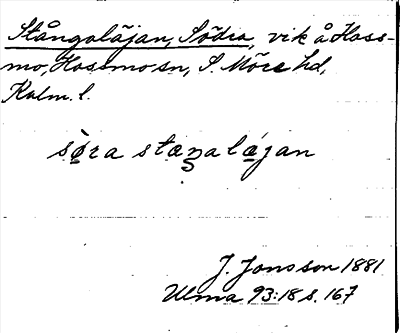 Stångaläjan, Södra, vik å Hoss-
mo, Hossmo sn, S. Möre hd,
Kalm. l.
söra staŋalä́jan
J. Jonsson 1881
Ulma 93:18 s. 167